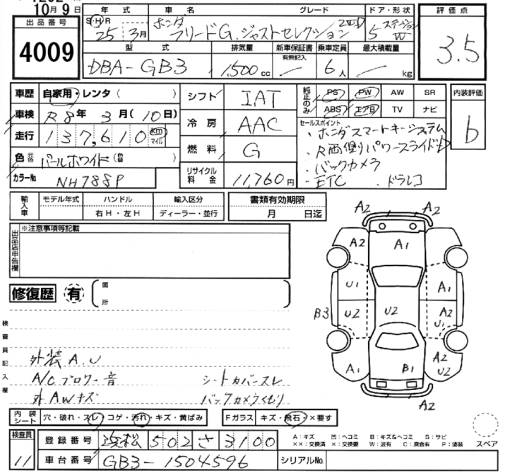 10月9日
出品番号
4009
年式 グレード ドア・形状
S・H・R 25年3月 ホンダ フリードG.ジャストセレクション 2WD 5 ステーション W
型式 排気量 新車保証書 有無記入 乗車定員 最大積載量
DBA-GB3 1,500cc 6人 kg
評価点
3.5
車歴 自家用・レンタ
車検 R8年3月(10日)
走行 137,610 km マイル
色 パールホワイト
カラーNo NH788P
シフト IAT
冷房 AAC
燃料 G
リサイクル料金 11,760円
純正のみ PS PW AW SR
ABS エアB TV ナビ
セールスポイント
・ホンダスマートキーシステム
・R両側パワースライドD
・バックカメラ
・ETC ・ドラレコ
内装評価
b
輸入車 モデル年式 ハンドル 輸入区分
右H・左H ディーラー・並行
書類有効期限
月 日迄
出品店申告欄
※注意事項等記載
修復歴 有 箇所
検査員記入欄
外装A.U
A/Cブロワー音 シートカバースレ
外AWキズ バックカメラくもり
A2 A2
A2 A1 A2
U1 A1
B3 U2 U2 A2
U2 A2
A2 A1
A2
内装シート 穴・破れ・スレ コゲ・汚れ・キズ・黄ばみ
Fガラス キズ・飛石 ×要す
検査員
11
登録番号 浜松 502 さ 3100
車台番号 GB3-1504596
シリアルNo
A：キズ 凹：ヘコミ B：キズ&ヘコミ S：サビ
××：交換済 ×：要交換 W：波有 C：腐食 P：塗装
スペア